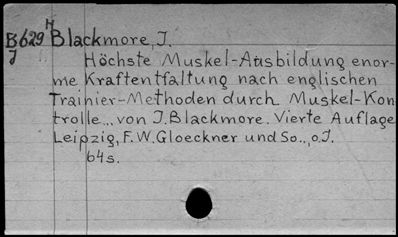 H
B629 Blackmore, J.
J
Höchste Muskel-Ausbildung enor-
me Kraftentfaltung nach englischen
Trainier-Methoden durch Muskel-Kon
trolle... von J. Blackmore. Vierte Auflage
Leipzig, F. W. Gloeckner und So.., o.J.
64s.